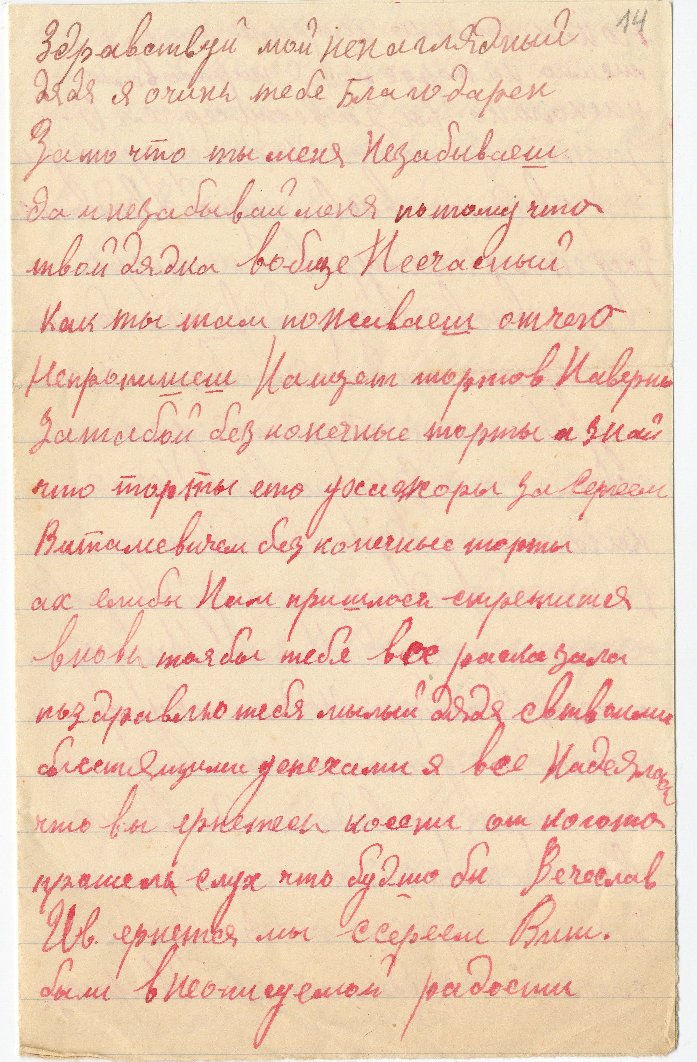 14
Здравствуй мой ненаглядный
дядя я очинь тебе Благодарен
Зато что ты меня Незабываеш
да и незабывай меня потому что
твой дядка вобще Несчасный
как ты там поживаеш отчего
Непропишеш Нащет тортов Наверно
Затабой без конечные торты а знай
что торты ето ухажоры за Сергеем
Виталиевичем без конечные торты
ах еслибы Нам пришлось стретится
вновь тоябы тебе все расказала
поздравлю тебя милый дядя ствоими
блестящими успехами я все Надеялась
что вы ернетесь косени от когото
прашель слух что будто бы Вечеслав
Ив. ернется мы ссереем Вит.
были внеописуемой радости